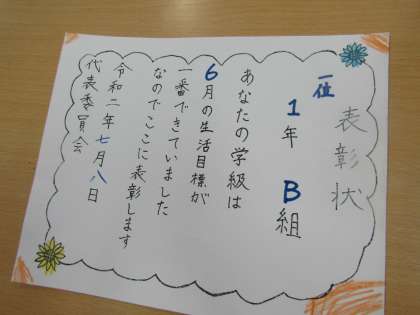 表彰状
一位
1年 B組
あなたの学級は
6月の生活目標が
一番できていました
なのでここに表彰します
令和二年七月八日
代表委員会